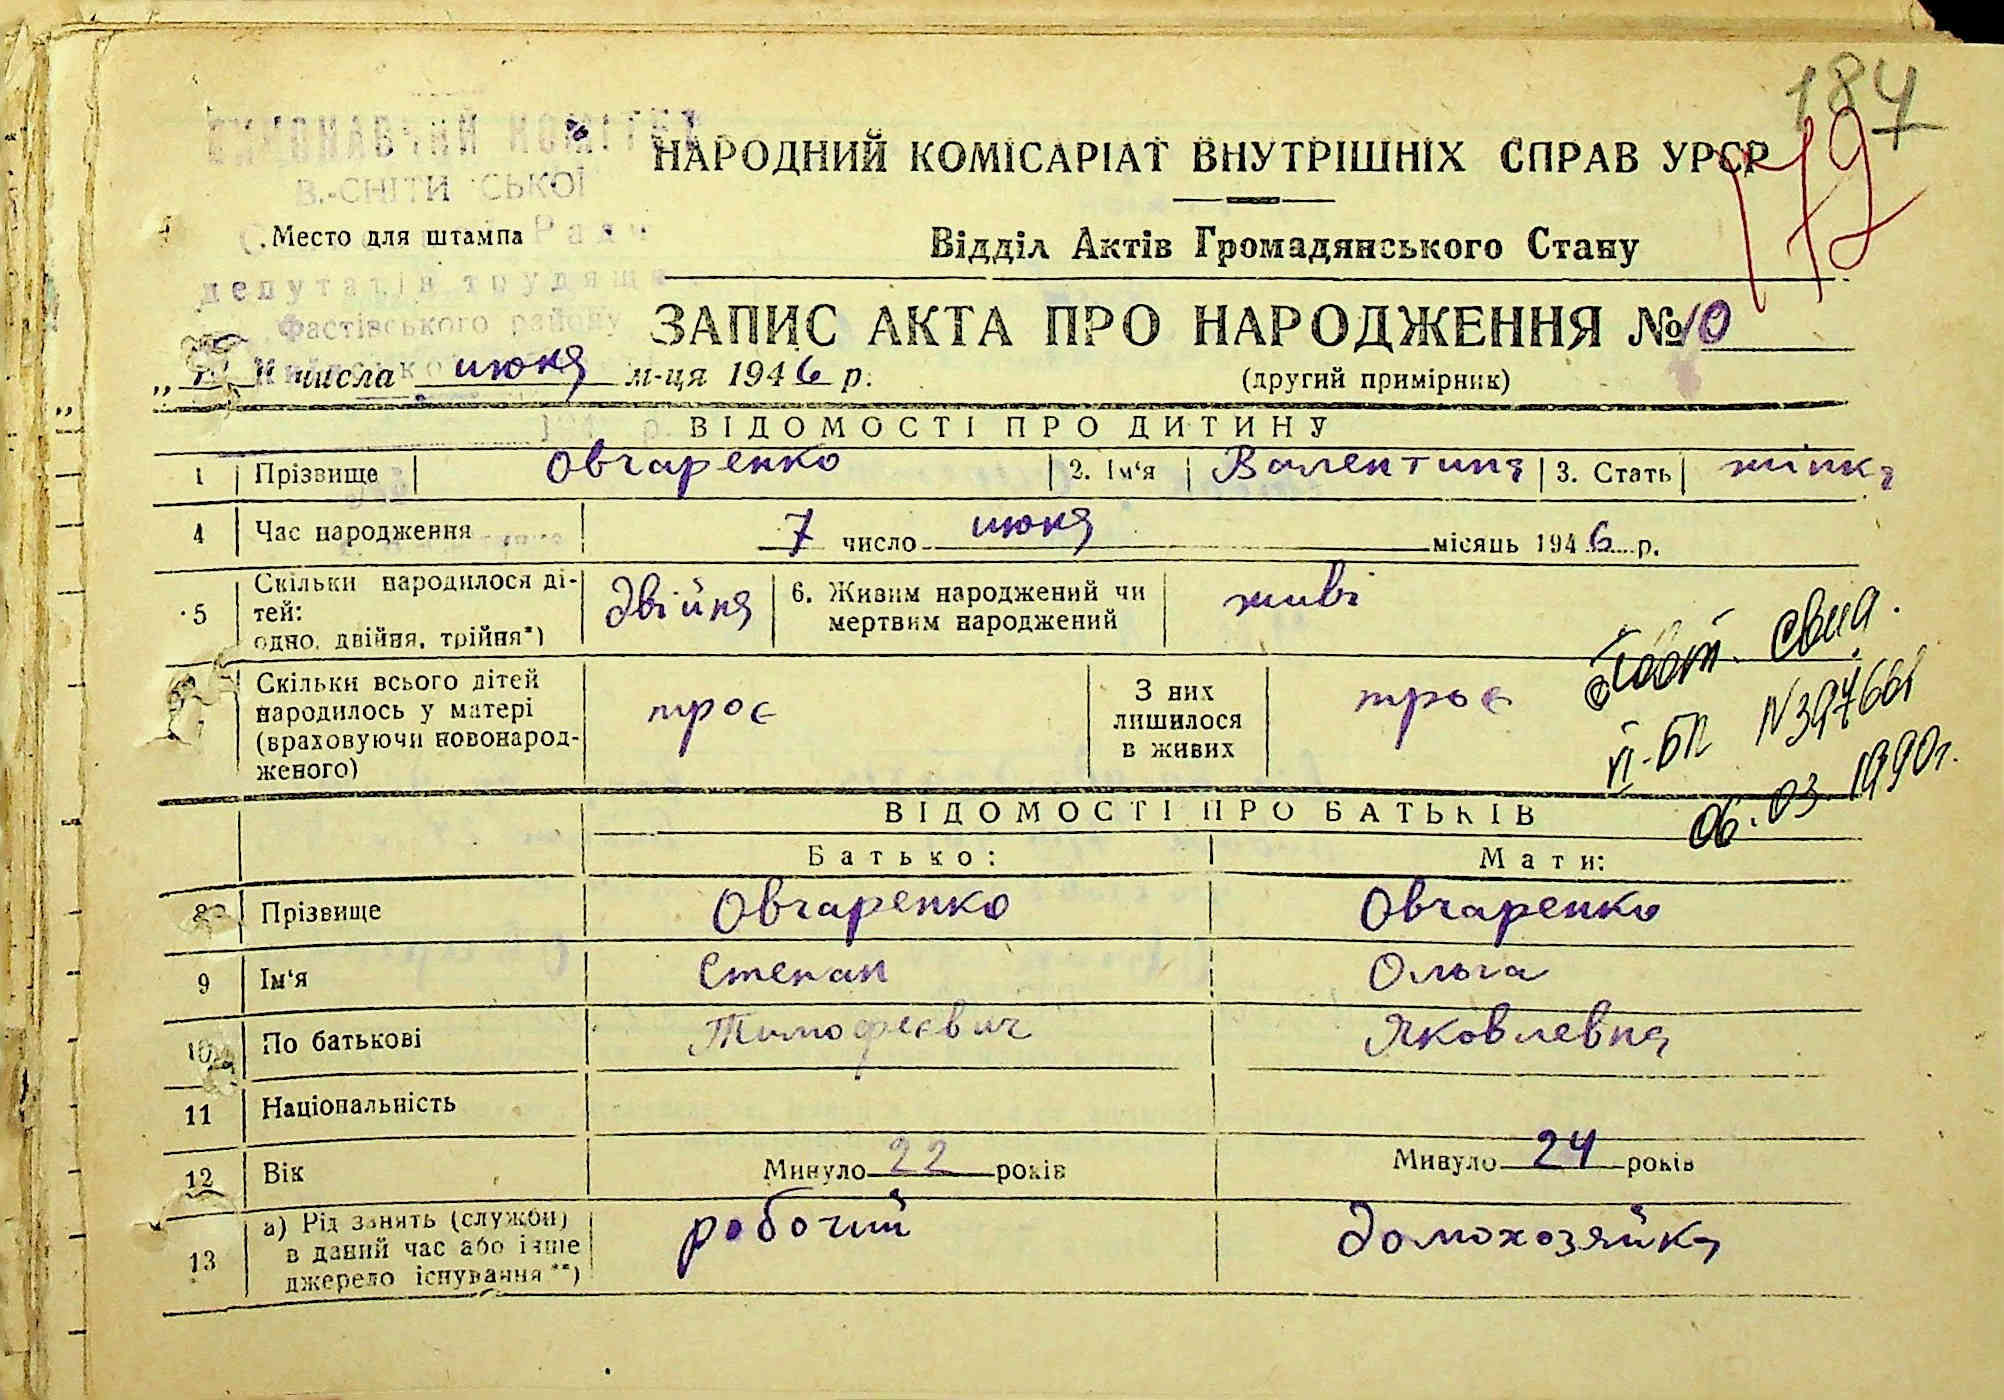 184
179
ВИКОНАВЧИЙ КОМІТЕТ
НАРОДНИЙ КОМІСАРІАТ ВНУТРІШНІХ СПРАВ УРСР
В.-СНІТИ СЬКОЇ
Место для штампа Ради
Відділ Актів Громадянського Стану
депутатів трудящи
Фастівського району
ЗАПИС АКТА ПРО НАРОДЖЕННЯ № 10
числа июня м-ця 1946 р.
(другий примірник)
ВІДОМОСТІ ПРО ДИТИНУ
1 Прізвище Овчаренко 2. Ім‘я Валентина 3. Стать жінка
4 Час народження 7 число июня місяць 1946 р.
5 Скільки народилося ді-
тей:
одно, двійня, трійня*) двійня 6. Живим народжений чи
мертвим народжений живі
Скільки всього дітей
народилось у матері
(враховуючи новонарод-
женого) троє З них
лишилося
в живих троє
Повт. свид.
II-БП N 397661
06.03 1990г.
ВІДОМОСТІ ПРО БАТЬКІВ
Батько: Мати:
8 Прізвище Овчаренко Овчаренко
9 Ім‘я Степан Ольга
10 По батькові Тимофеевич Яковлевна
11 Національність
12 Вік Минуло 22 років Минуло 24 років
13 а) Рід занять (служби)
в даний час або інше
джерело існування**) робочий домохозяйка